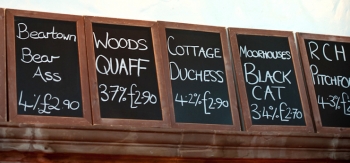 Beartown
Bear
Ass
4% £2.90
WOODS
QUAFF
3.7% £2.90
COTTAGE
DUCHESS
4.2% £2.90
MOORHOUSES
BLACK
CAT
3.4% £2.70
RCH
PITCHFO
4.3% £